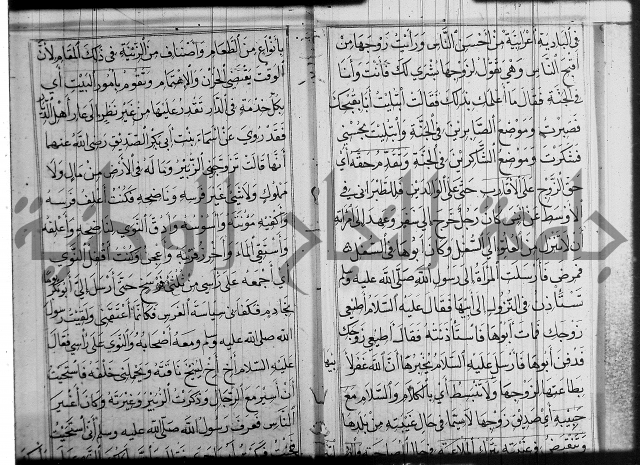 في البادية اعرابية من احسن الناس ورأيت زوجها من
اقبح الناس وهي تقول لزوجها بشرى لك فانت وانا
في الجنة فقال ما اعلمك بذلك فقالت ابتليت انا بقبحك
فصبرت وموضع الصابرين في الجنة وابتليت بحسني
فشكرت وموضع الشاكرين في الجنة وتقدم حقه اي
حق الزوج على الاقارب حتى على الوالدين فللطبراني في
الاوسط عن انس كان رجل خرج الى سفر وعهد الى امرأته
ان لا تنزل من العلو الى السفل وكان ابوها في السفل
فمرض فارسلت المرأة الى رسول الله صلى الله عليه وسلم
تستأذن في النزول الى ابيها فقال عليه السلام اطيعي
زوجك فمات ابوها فاستأذنته فقال اطيعي زوجك
فدفن ابوها فارسل عليه السلام يخبرها ان الله غفر لابيها
بطاعتها لزوجها ولا تنبسط اي بالكلام والسلام مع
حبيبه اي صديق زوجها لاسيما في حال غيبته من بلدها
بانواع من الطعام واصناف من الزينة في ذلك المقام لان
الوقت يقتضي الحزن والاهتمام وتقوم بامور البيت اي
بكل خدمة في الدار تقدر عليها من غير نظر الى عار اهل الدار
فقد روي عن اسماء بنت ابي بكر الصديق رضي الله عنهما
انها قالت تزوجني الزبير وما له في الارض من مال ولا
مملوك ولا شيء غير فرسه وناضحه فكنت اعلف فرسه
واكفيه مؤنته واسوسه وادق النوى لناضحه واعلفه
واستقي الماء واخرز غربه واعجن وكنت انقل النوى
على رأسي من ثلثي فرسخ حتى ارسل الي ابو بكر
بخادم فكفاني سياسة الفرس فكأنما اعتقني ولقيت رسول
الله صلى الله عليه وسلم ومعه اصحابه والنوى على رأسي فقال
عليه السلام اخ اخ لينيخ ناقته ويحملني خلفه فاستحييت
ان اسير مع الرجال وذكرت الزبير وغيرته وكان اغير
الناس فعرف رسول الله صلى الله عليه وسلم اني استحييت
جامعة النجاح الوطنية